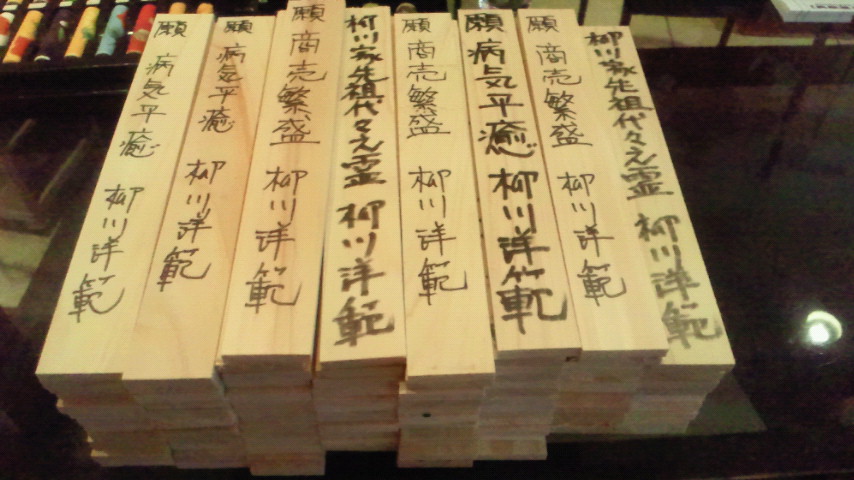 願 病気平癒 柳川洋範
願 病気平癒 柳川洋範
願 商売繁盛 柳川洋範
柳川家先祖代々之霊 柳川洋範
願 商売繁盛 柳川洋範
願 病気平癒 柳川洋範
願 商売繁盛 柳川洋範
柳川家先祖代々之霊 柳川洋範